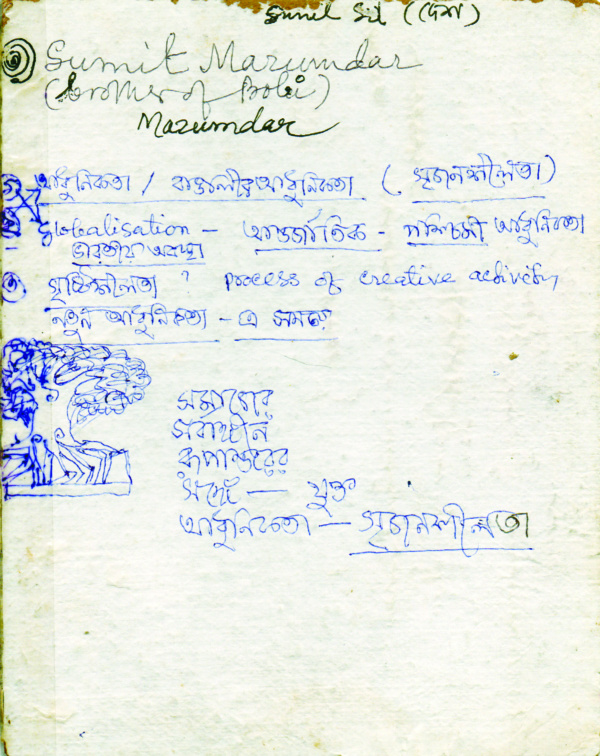 Sunil Sil (দেশ)
Sumit Mazumdar
(brother of Bobi)
Mazumdar
আধুনিকতা / বাঙালীর আধুনিকতা (সৃজনশীলতা)
Globalisation – আন্তর্জাতিক – পশ্চিমী আধুনিকতা
ভারতীয় অবস্থা
সৃষ্টিশীলতা ? process of creative activity
নতুন আধুনিকতা – এ সময়ে
সমাজের
সর্বাঙ্গীন
রূপান্তরের
সঙ্গে — যুক্ত
আধুনিকতা — সৃজনশীলতা